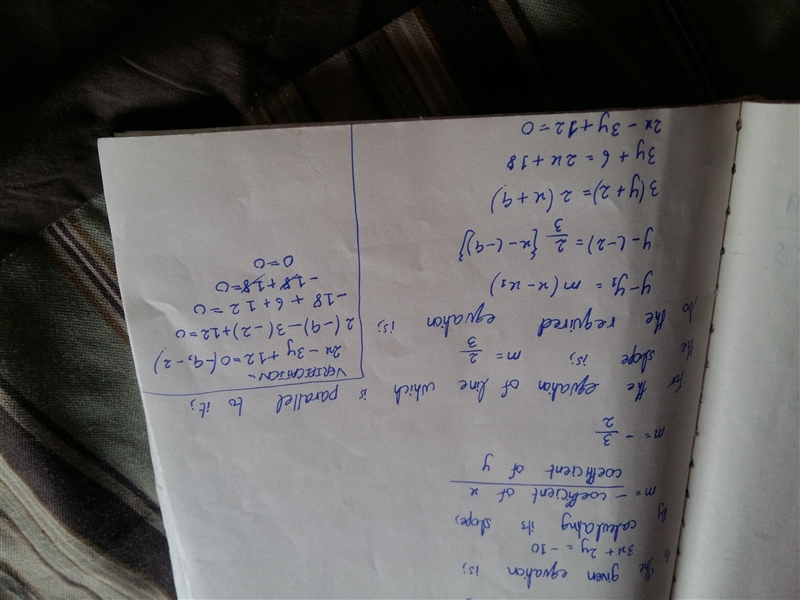 The given equation is;
3x + 2y = -10
By calculating its slope,
m = - coefficient of x / coefficient of y
m = - 3/2
for the equation of line which is parallel to it;
the slope is; m = 2/3
So the required equation is;
y-y₁ = m(x-x₁)
y-(-2) = 2/3 {x-(-9)}
3(y+2) = 2(x+9)
3y + 6 = 2x + 18
2x - 3y + 12 = 0
VERIFICATION -
2x - 3y + 12 = 0 (-9, -2)
2(-9) - 3(-2) + 12 = 0
-18 + 6 + 12 = 0
-18 + 18 = 0
0 = 0